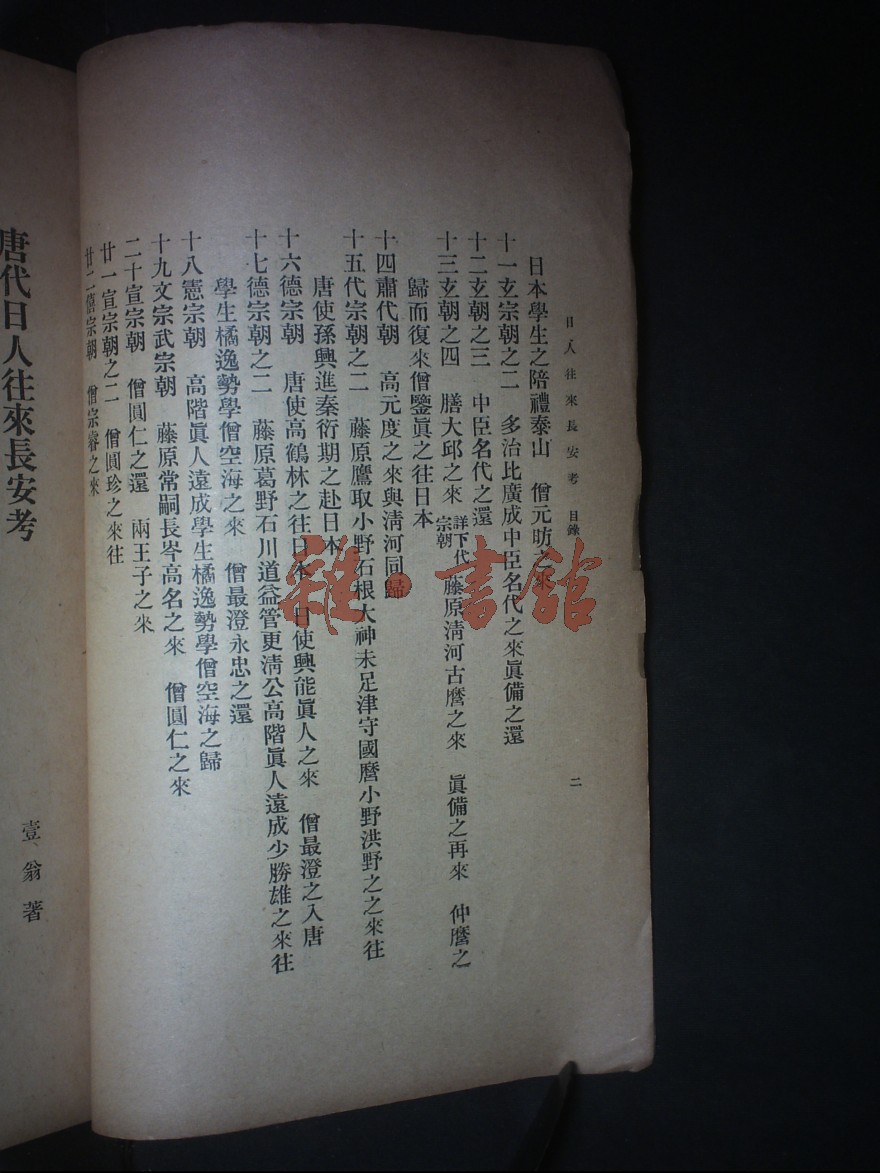 日人往來長安考 目錄 二
日本學生之陪禮泰山 僧元昉之來
十一玄宗朝之二 多治比廣成中臣名代之來眞備之還
十二玄朝之三 中臣名代之還
十三玄朝之四 膳大邱之來 詳下代宗朝 藤原淸河古麿之來 眞備之再來 仲麿之
歸而復來僧鑒眞之往日本
十四肅代朝 高元度之來與淸河同歸
十五代宗朝之二 藤原鷹取小野石根大神末足津守國麿小野洪野之之來往
唐使孫興進秦衍期之赴日本
十六德宗朝 唐使高鶴林之往日本 日使興能眞人之來 僧最澄之入唐
十七德宗朝之二 藤原葛野石川道益管更淸公高階眞人遠成少勝雄之來往
學生橘逸勢學僧空海之來 僧最澄永忠之還
十八憲宗朝 高階眞人遠成學生橘逸勢學僧空海之歸
十九文宗武宗朝 藤原常嗣長岑高名之來 僧圓仁之來
二十宣宗朝 僧圓仁之還 兩王子之來
廿一宣宗朝之二 僧圓珍之來往
廿二僖宗朝 僧宗睿之來
唐代日人往來長安考
壹翁著
雜·書館